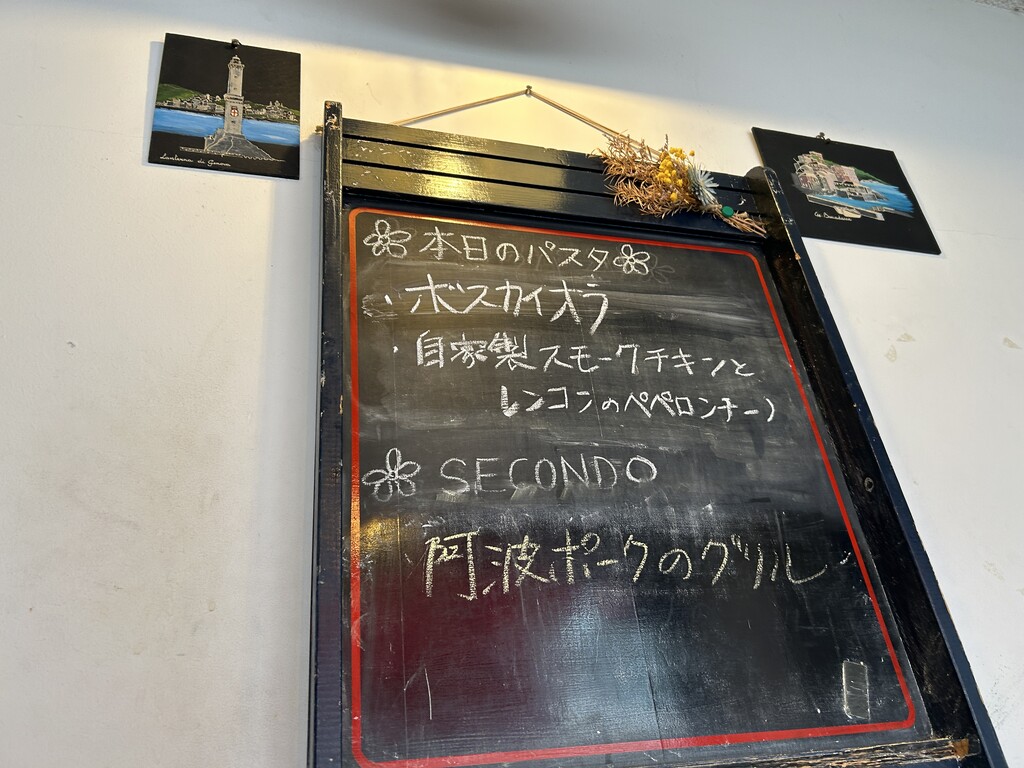 Lanterna di Genova
本日のパスタ
・ボスカイオラ
・自家製スモークチキンと
レンコンのペペロンチーノ
SECONDO
阿波ポークのグリル